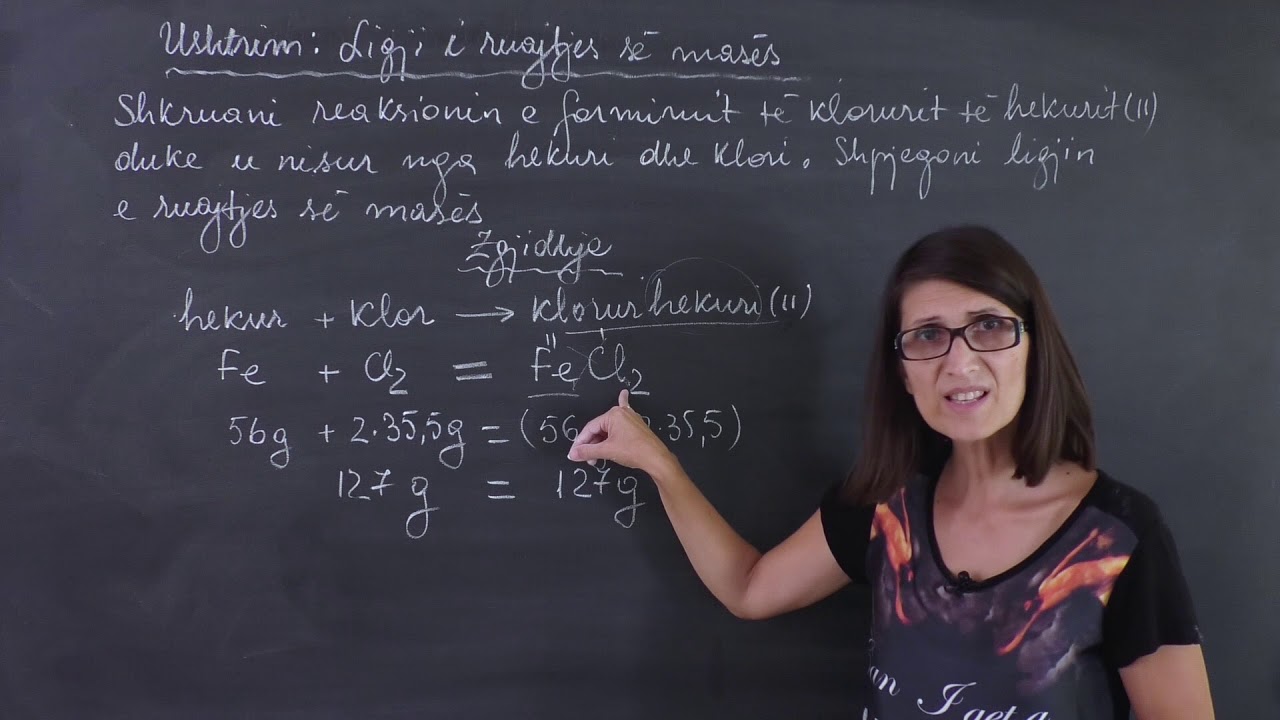 Ushtrim: Ligji i ruajtjes së masës
Shkruani reaksionin e formimit të klorurit të hekurit (II)
duke u nisur nga hekuri dhe klori. Shpjegoni ligjin
e ruajtjes së masës
Zgjidhje
hekur + klor → klorur hekuri (II)
Fe + Cl₂ = FeCl₂
II
56g + 2·35,5g = (56 2·35,5)
127 g = 127 g
an I get a